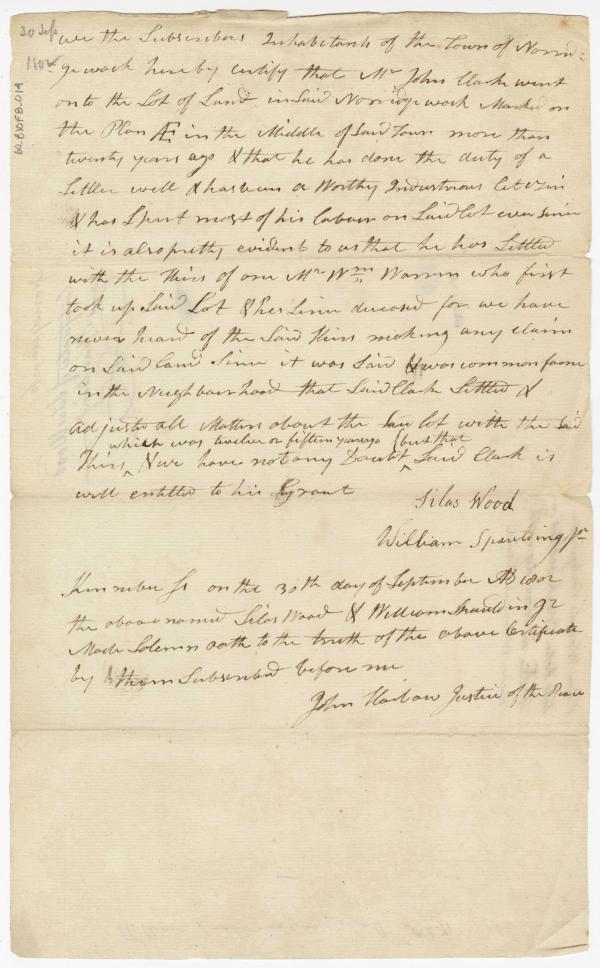 30 Sep
1802
62.B10F8.019
we the Subscribers Inhabitants of the Town of Norrid=
gewock hereby certify that Mr John Clark went
on to the Lot of Land in Said Norridgewock Marked on
the Plan Æ in the Middle of Said town more than
twenty years ago & that he has done the duty of a
Settler well & has been a Worthy Industrous Citizin
& has Spent most of his labour on Said lot ever Sinc
it is also pretty evident to us that he has Settled
with the Hiers of one Mr Wm Warren who first
took up Said Lot & hes Sinc deceased for we have
never heard of the Said Hiers making any claim
on Said land Sinc it was Said & was common fame
in the Neighbourhood that Said Clark Settled &
adjusted all Matters about the Said lot with the Said
which was twelve or fifteen years ago but that
Hiers & we have not any Doubt Said Clark is
well entitled to his Grant
Silas Wood
William Spaulding Jr
Kennebec Ss on the 30th day of September AD 1802
the above named Silas Wood & William Spaulding Jr
Made Solemn oath to the truth of the above Certificate
by them Subscribed before me
John Harlow Justice of the Peace